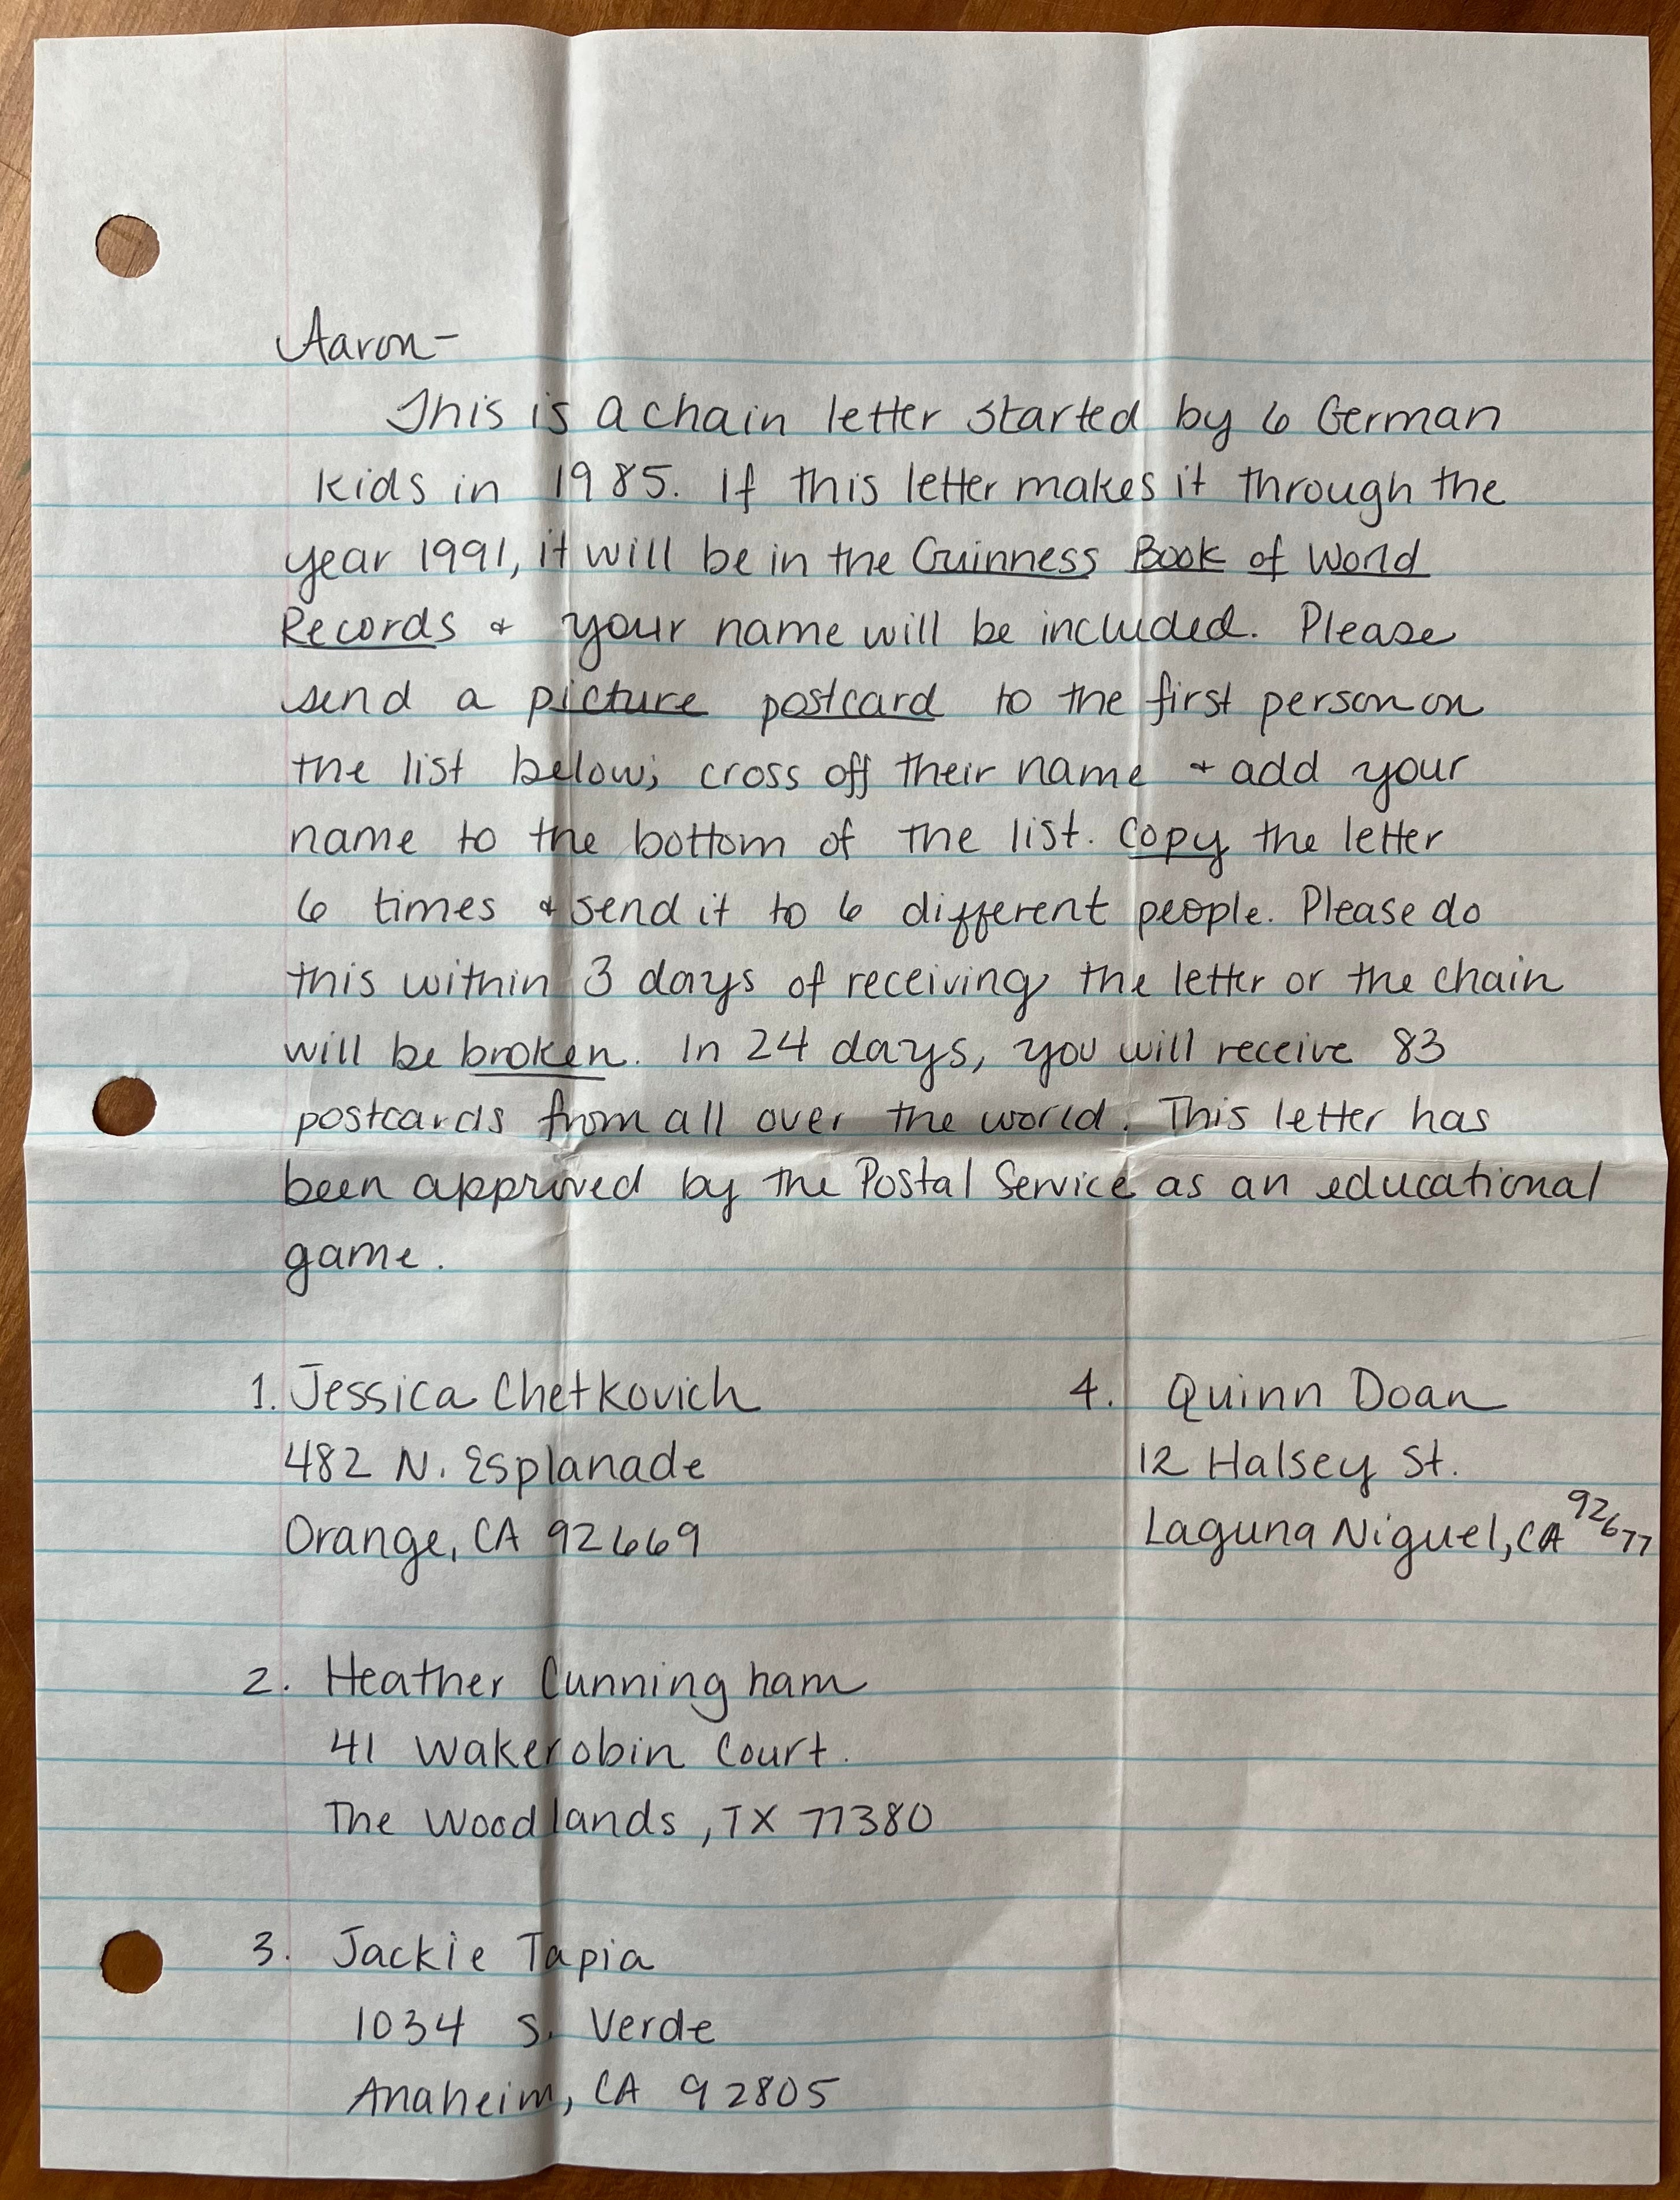 Aaron-
This is a chain letter started by 6 German
kids in 1985. If this letter makes it through the
year 1991, it will be in the Guinness Book of World
Records & your name will be included. Please
send a picture postcard to the first person on
the list below; cross off their name & add your
name to the bottom of the list. Copy the letter
6 times & send it to 6 different people. Please do
this within 3 days of receiving the letter or the chain
will be broken. In 24 days, you will receive 83
postcards from all over the world. This letter has
been approved by the Postal Service as an educational
game.
1. Jessica Chetkovich
482 N. Esplanade
Orange, CA 92669
2. Heather Cunningham
41 Wakerobin Court.
The Woodlands, TX 77380
3. Jackie Tapia
1034 S. Verde
Anaheim, CA 92805
4. Quinn Doan
12 Halsey St.
Laguna Niguel, CA 92677